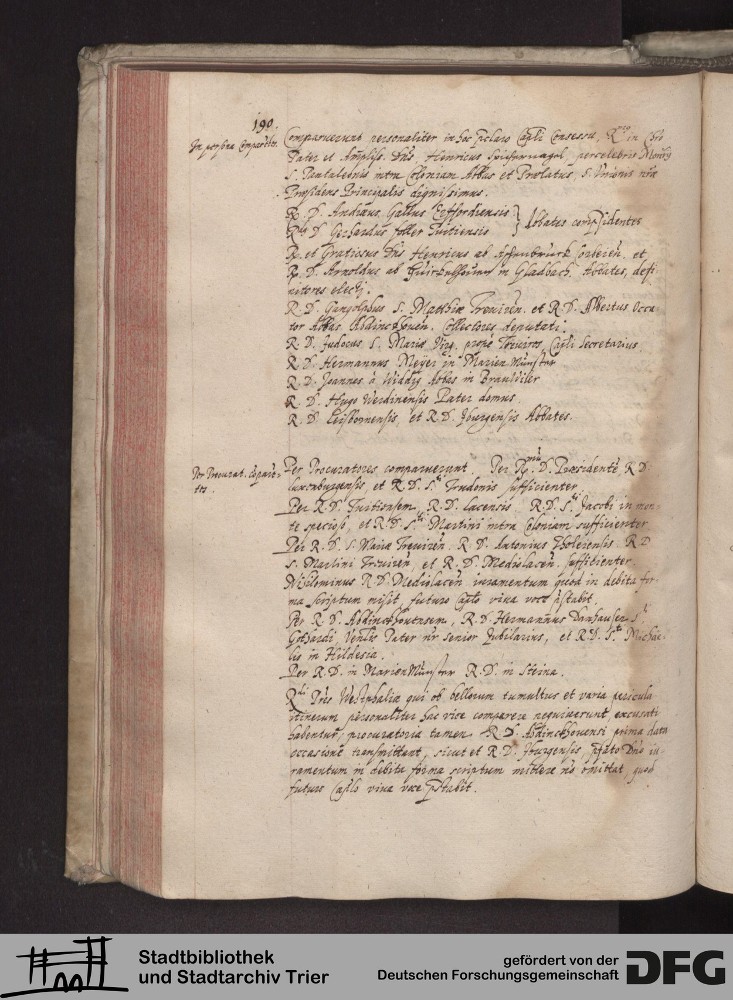 190.
In persona Comparentes.
Comparuerunt personaliter in hoc pclaro Capli Consessu, Rmus in Chro
Pater et Ampliss. Dns, Henricus Spichernagel, percelebris Monrij
S. Pantaleonis intra Coloniam Abbas et Praelatus, S. Unionis nrae
Praesidens Principalis dignissimus.
R. D. Andraeas Gallus Erffordiensis
R. D. Gerhardus Tuitiensis } Abbates compsidentes
R. et Gratiosus Dns Henricus ab Corbeien. et
R. D. Arnoldus ab in Gladbach. Abbates, defi-
nitores electi.
R. D. Gangolphus S. Matthiae Treviren. et R. D. Albertus
Abbas Abdinckhouen. Collectores deputati.
R. D. Judocus S. Mariae Virg. prope Treviros, Capli Secretarius
R. D. Hermannus Meyer in Marien Münster
R. D. Joannes à Abbas in Brauwiler
R. D. Hugo Werdinensis Pater domus.
R. D. Leisbornensis, et R. D. Iburgensis Abbates.
Per Procurat. Compare-
tes.
Per Procuratores comparuerunt. Per Rmum D. Praesidente, R. D.
Luxenburgensis, et R. D. Sti Trudonis sufficienter.
Per R. D. Tuitiensem, R. D. Lacensis, R. D. Sti Jacobi in mon-
te specioso, et R. D. Sti Martini intra Coloniam sufficienter
Per R. D. S. Mariae Treviren. R. D. Antonius Tholeiensis R. D.
S. Martini Treviren. et R. D. Mediolacen. sufficienter
Nihilominus R. D. Mediolacen. iuramentum quod in debita for-
ma scriptum misit, futuro Caplo viva voce pstabit.
Per R. D. Abdinckhouensem, R. D. Hermannus Sti
Gothardi, Pater nr senior Jubilarius, et R. D. Sti Michae-
lis in Hildesia.
Per R. D. in Marien Münster R. D. in Steina.
Rdi Pres Westphaliae qui ob bellorum tumultus et varia pericula
itinerum personaliter hac vice comparere nequiverunt, excusati
habentur, procuratoria tamen R. D. Abdinckhouensi prima data
occasione transmittant, sicut et R. D. Iburgensis, pfato Dno iu-
ramentum in debita forma scriptum mittere no omittat, quod
futuro Caplo viva voce pstabit.
Stadtbibliothek
und Stadtarchiv Trier
gefördert von der
Deutschen Forschungsgemeinschaft
DFG